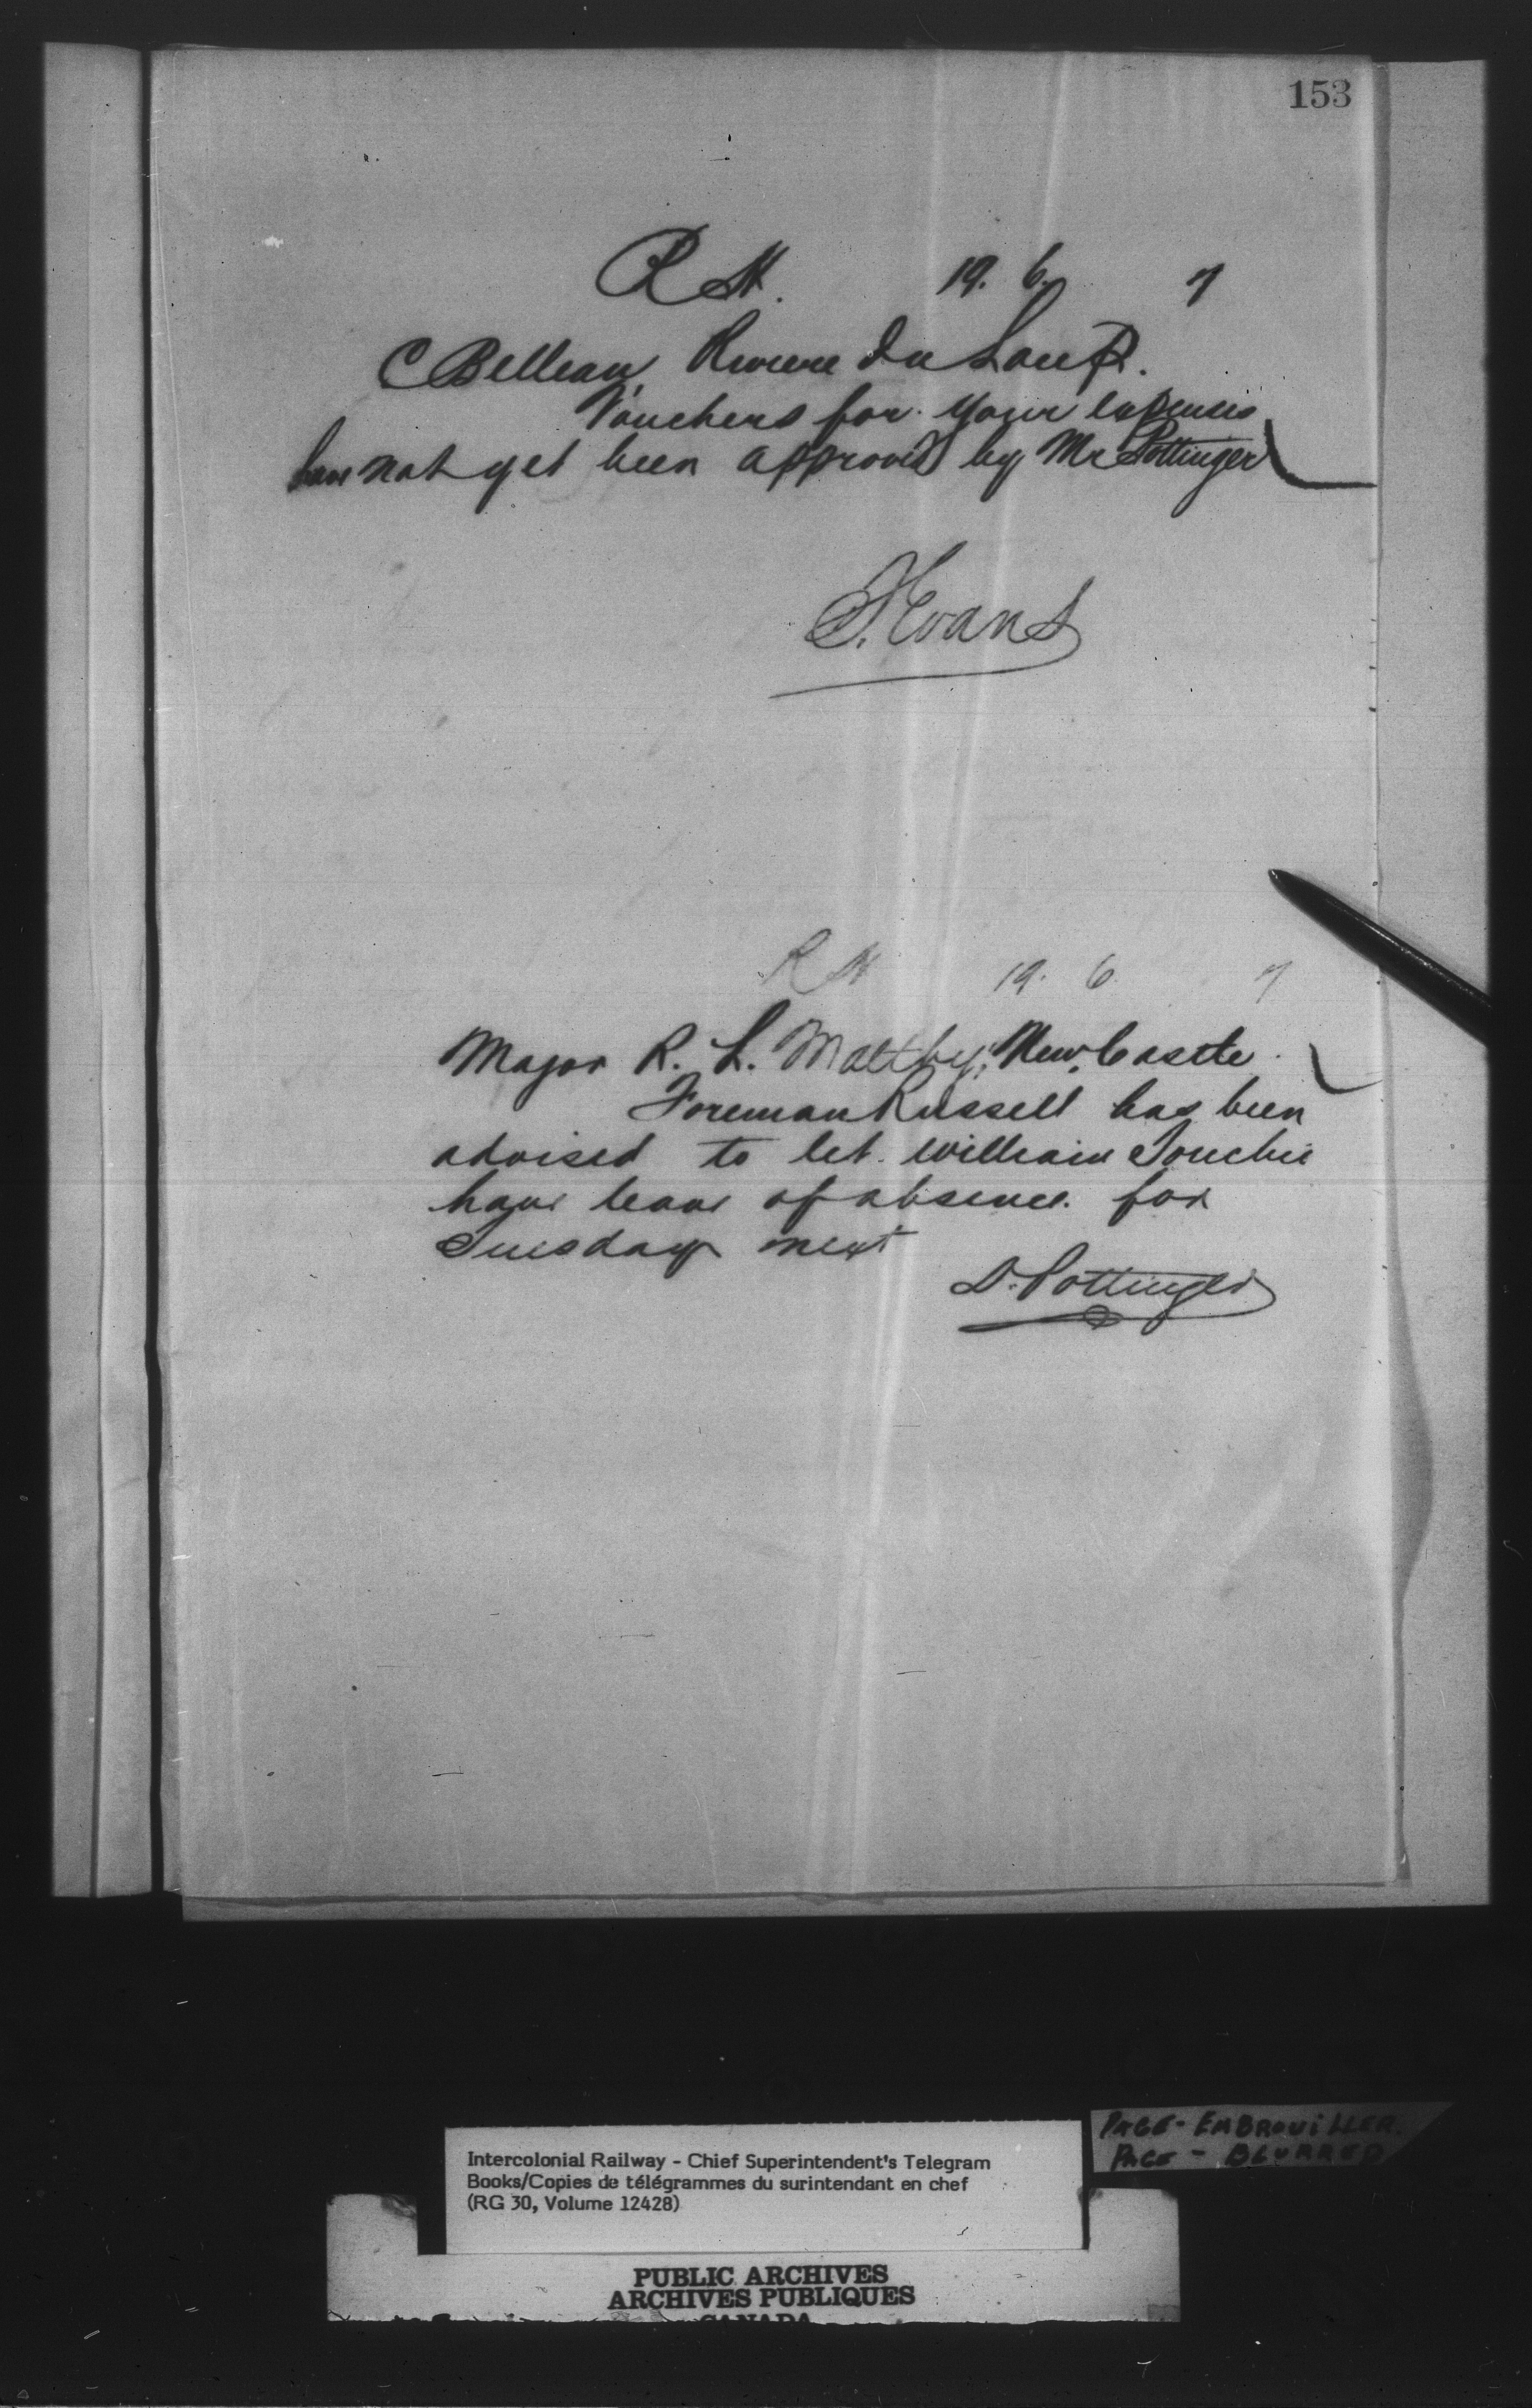 153
R H. 19. 6. 7
C Belleau Riviere du Loup.
Vouchers for your expenses
have not yet been approved by Mr Pottinger
T. Evans
R H 19. 6 7
Major R. L. Maltby, New Castle
Foreman Russell has been
advised to let William Touchie
have leave of absence for
Tuesday next
D. Pottinger
PAGE - EMBROUILLER.
PAGE - BLURRED
Intercolonial Railway - Chief Superintendent's Telegram
Books/Copies de télégrammes du surintendant en chef
(RG 30, Volume 12428)
PUBLIC ARCHIVES
ARCHIVES PUBLIQUES
CANADA